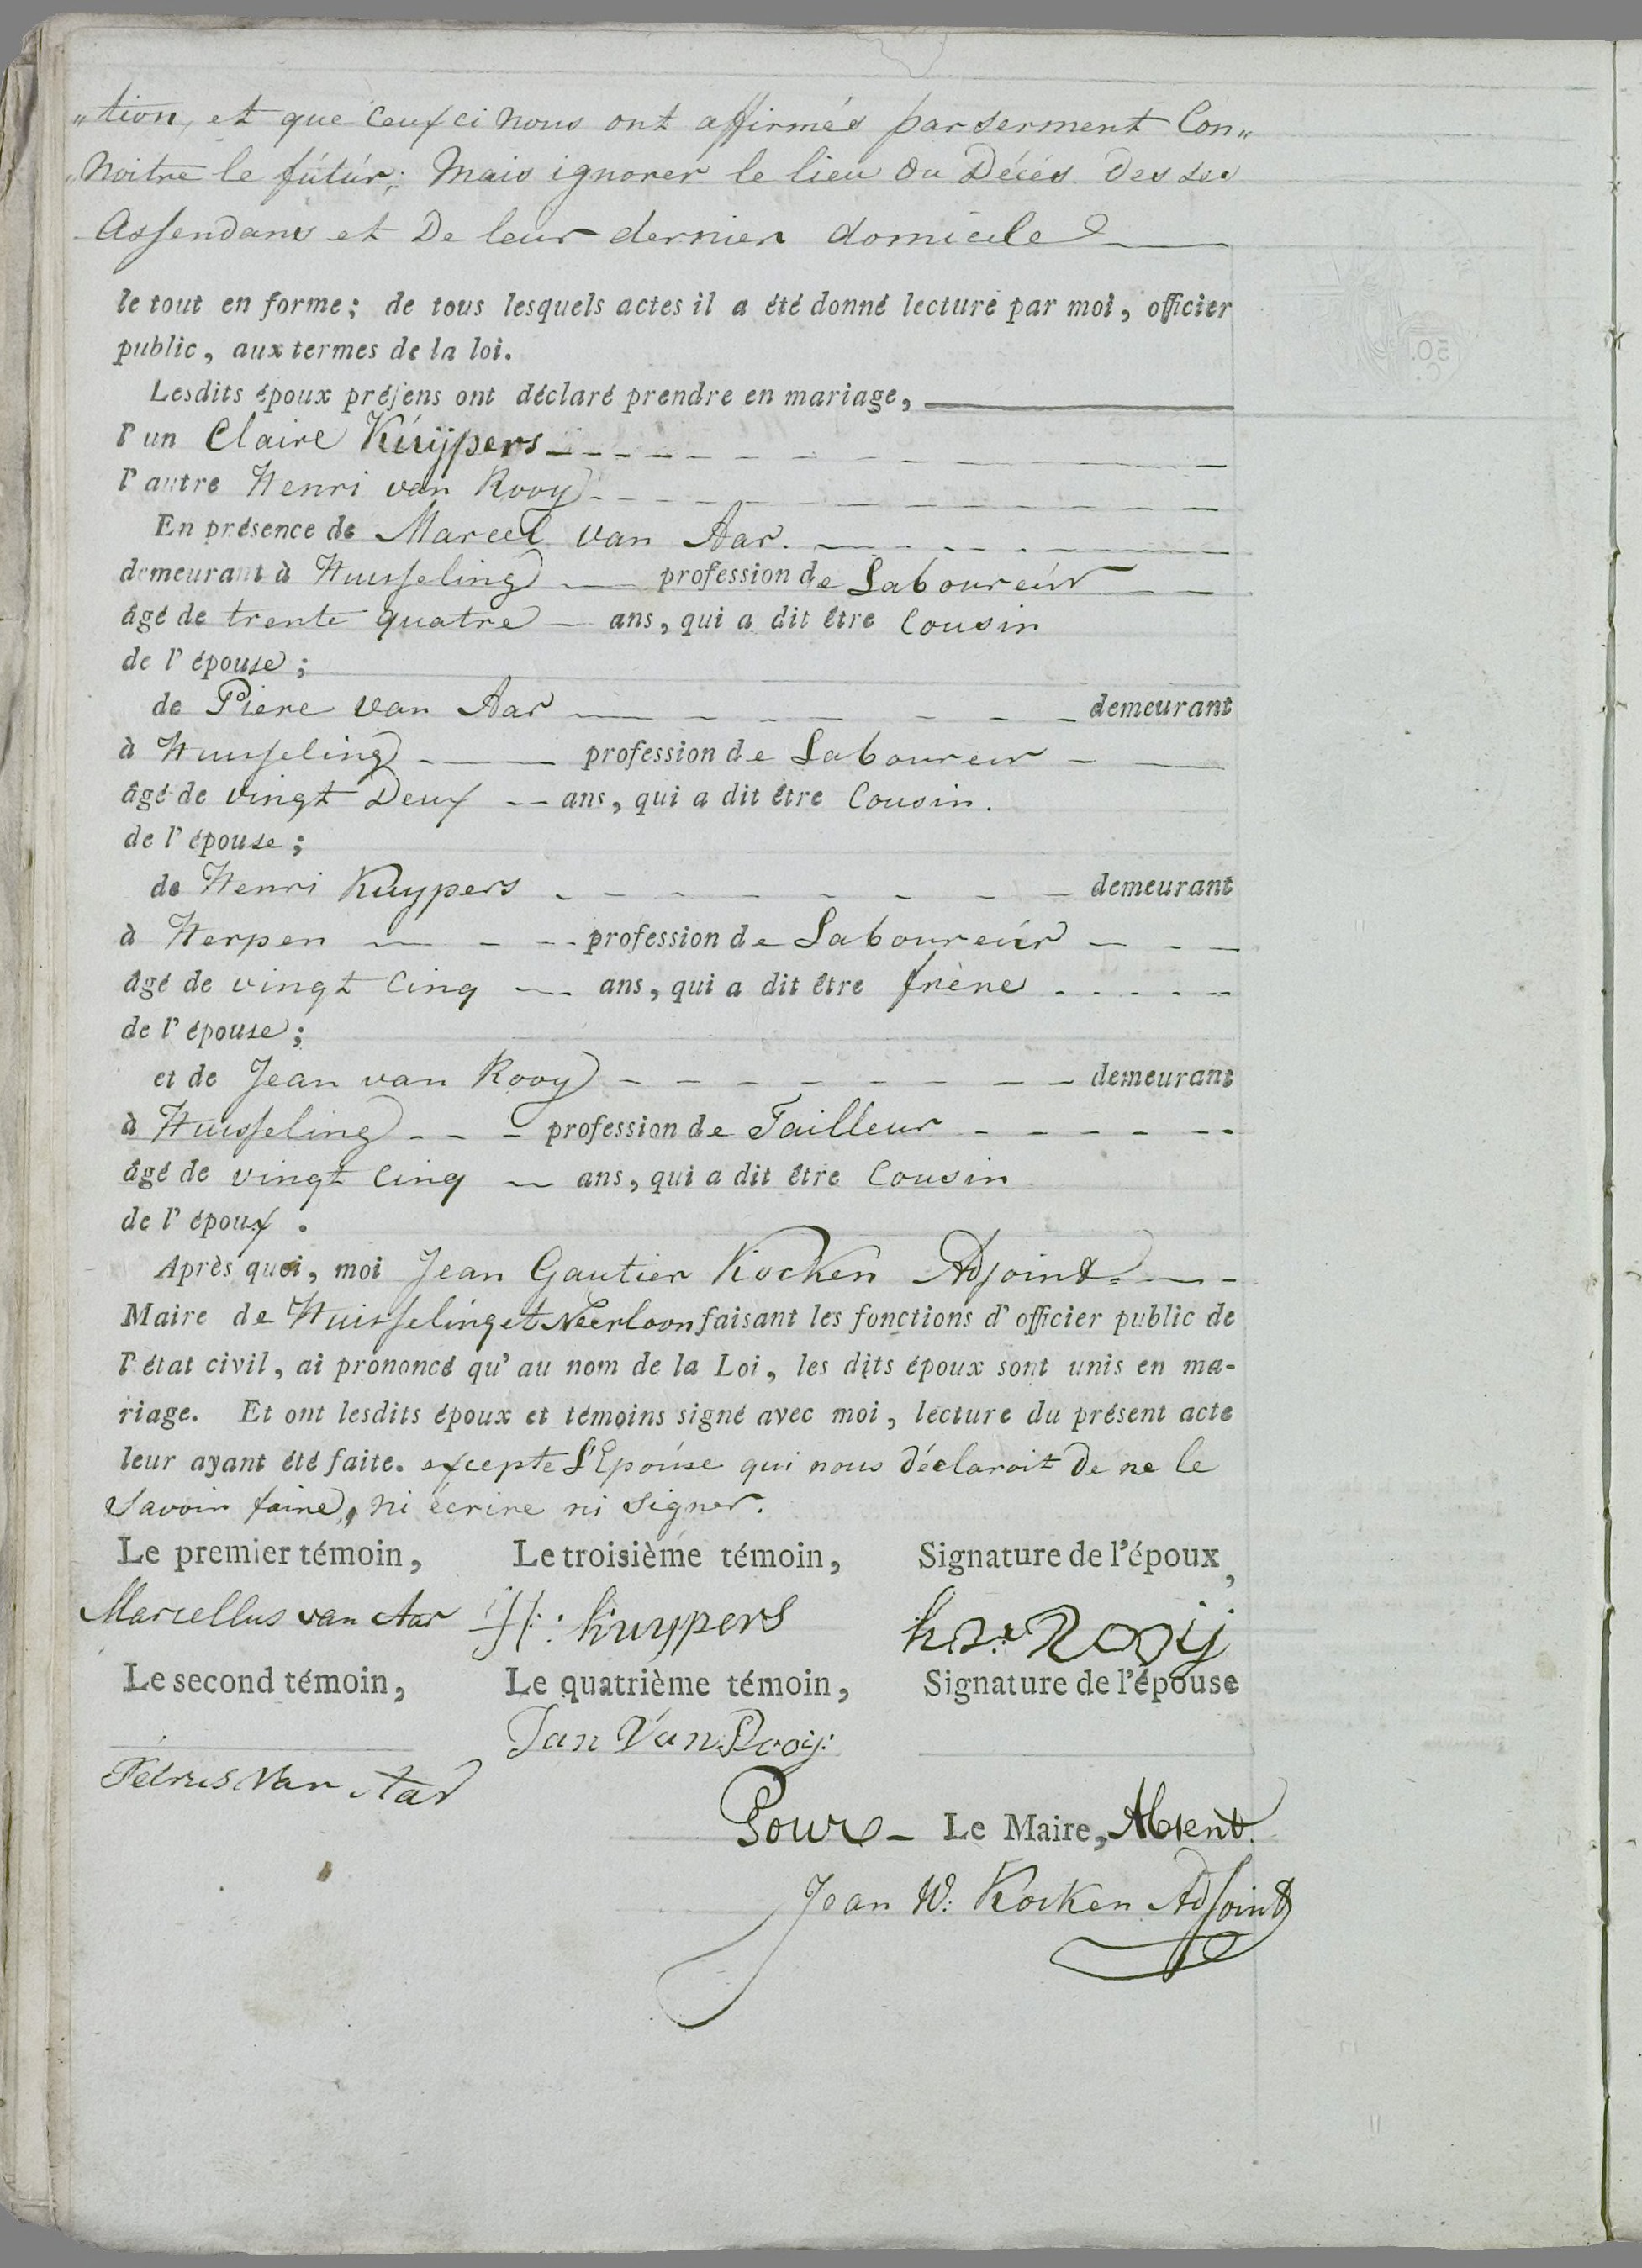 „tion, et que ceux ci nous ont affirmés par serment Con„
„noitre le fútúr; Mais ignorer le lieu du Décés des ses
Assendans et De leur dernier domicile
le tout en forme; de tous lesquels actes il a été donné lecture par moi, officier
public, aux termes de la loi.
Lesdits époux présens ont déclaré prendre en mariage,
l'un Claire Kúijpers
l'autre Henri van Rooy
En présence de Marcel van Aar.
demeurant à Huisseling profession de Laboureúr
âgé de trente quatre ans, qui a dit être Cousin
de l'épouse;
de Piere van Aar demeurant
à Huisseling profession de Laboureur
âgé de vingt Deux ans, qui a dit être Cousin.
de l'épouse;
de Henri Kuypers demeurant
à Herpen profession de Laboureúr
âgé de vingt Cinq ans, qui a dit être frère
de l'épouse;
et de Jean van Rooy demeurant
à Huisseling profession de Tailleur
âgé de vingt Cinq ans, qui a dit être Cousin
de l'époux.
Après quoi, moi Jean Gautier Kocken Adjoint
Maire de Huisseling et Neerloon faisant les fonctions d'officier public de
l'état civil, ai prononcé qu'au nom de la Loi, les dits époux sont unis en ma-
riage. Et ont lesdits époux et témoins signé avec moi, lecture du présent acte
leur ayant été faite. excepte L'Epoúse qui nous déclaroit De ne le
savoir faire, ni écrire ni signer.
Le premier témoin, Le troisième témoin, Signature de l'époux,
Marcellus van Aar H: kuypers h v Rooij
Le second témoin, Le quatrième témoin, Signature de l'épouse
Jan Van Rooij:
Petrus Van Aar
Pour Le Maire, Absent.
Jean W: Kocken Adjoint